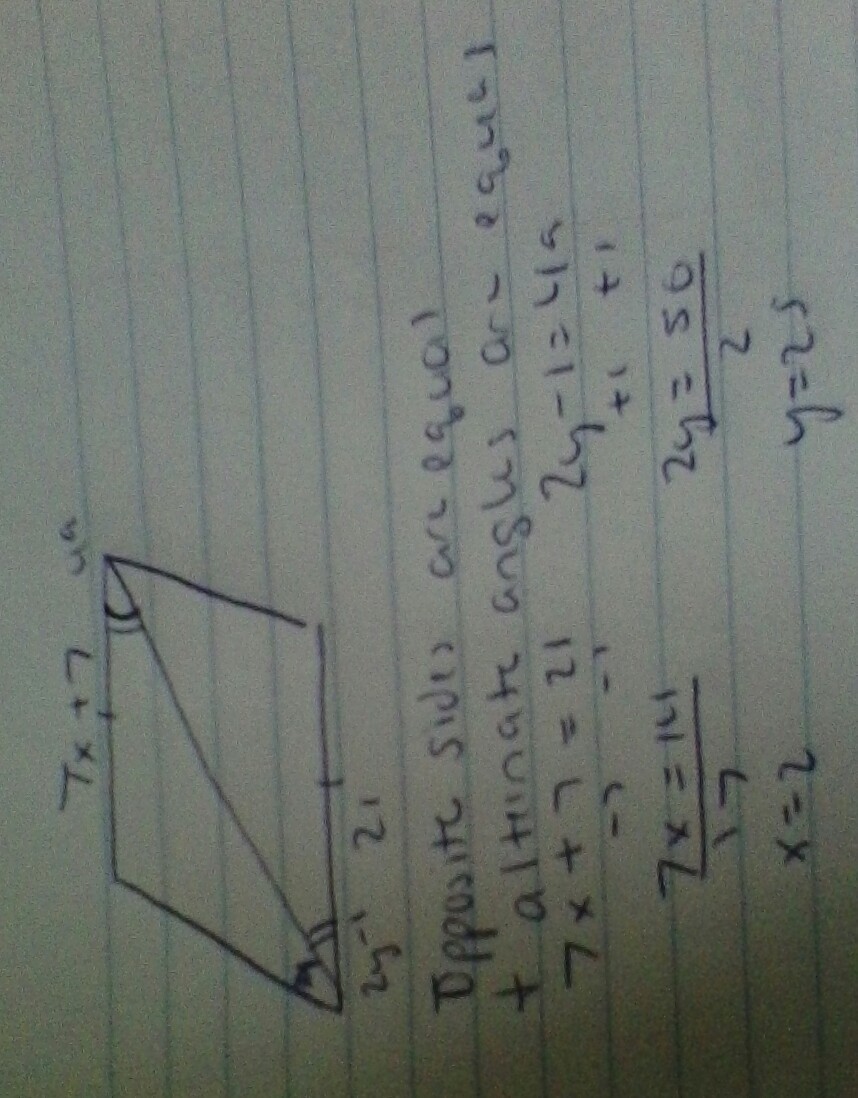 7x + 7 49
2y-1 21
Opposite sides are equal
+ altrinate angles are equal
7x + 7 = 21 2y - 1 = 49
-7 -7 +1 +1
7x = 14 2y = 50
7 2
x = 2 y = 25